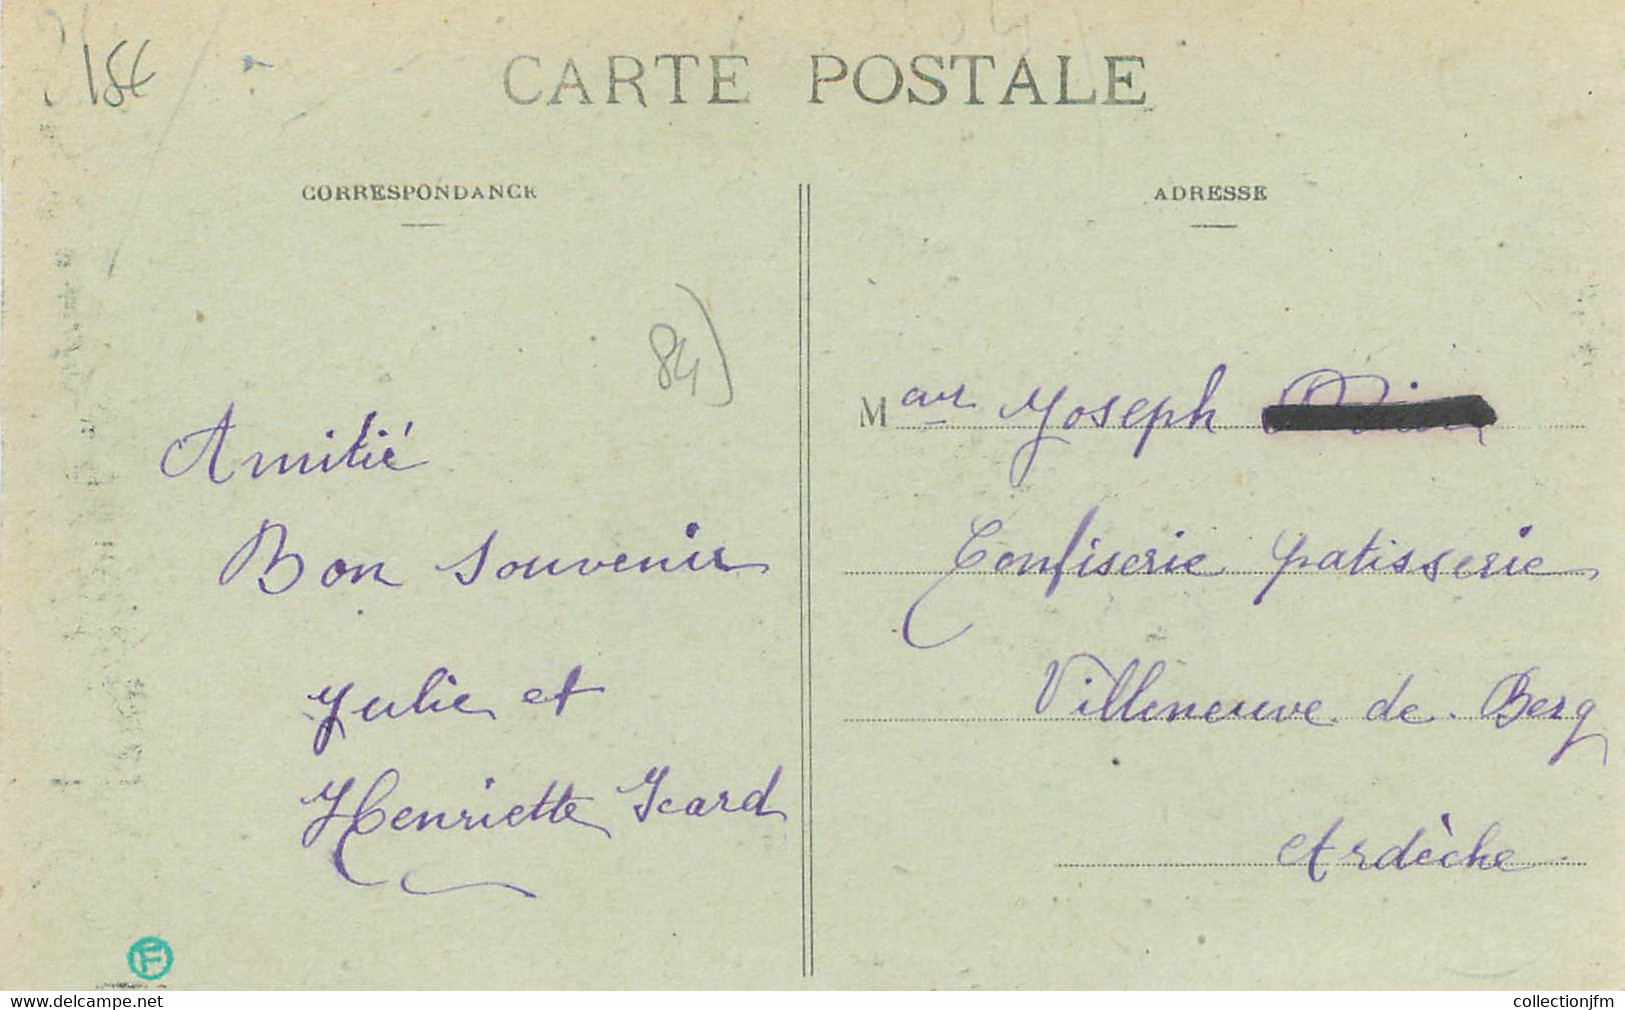 15€
CARTE POSTALE
CORRESPONDANCE
84)
Amitié
Bon Souvenir
Julie et
Henriette Icard
F
ADRESSE
Meur Joseph
Confiserie patisserie
Villeneuve de Berg
Ardèche
www.delcampe.net
collectionjfm